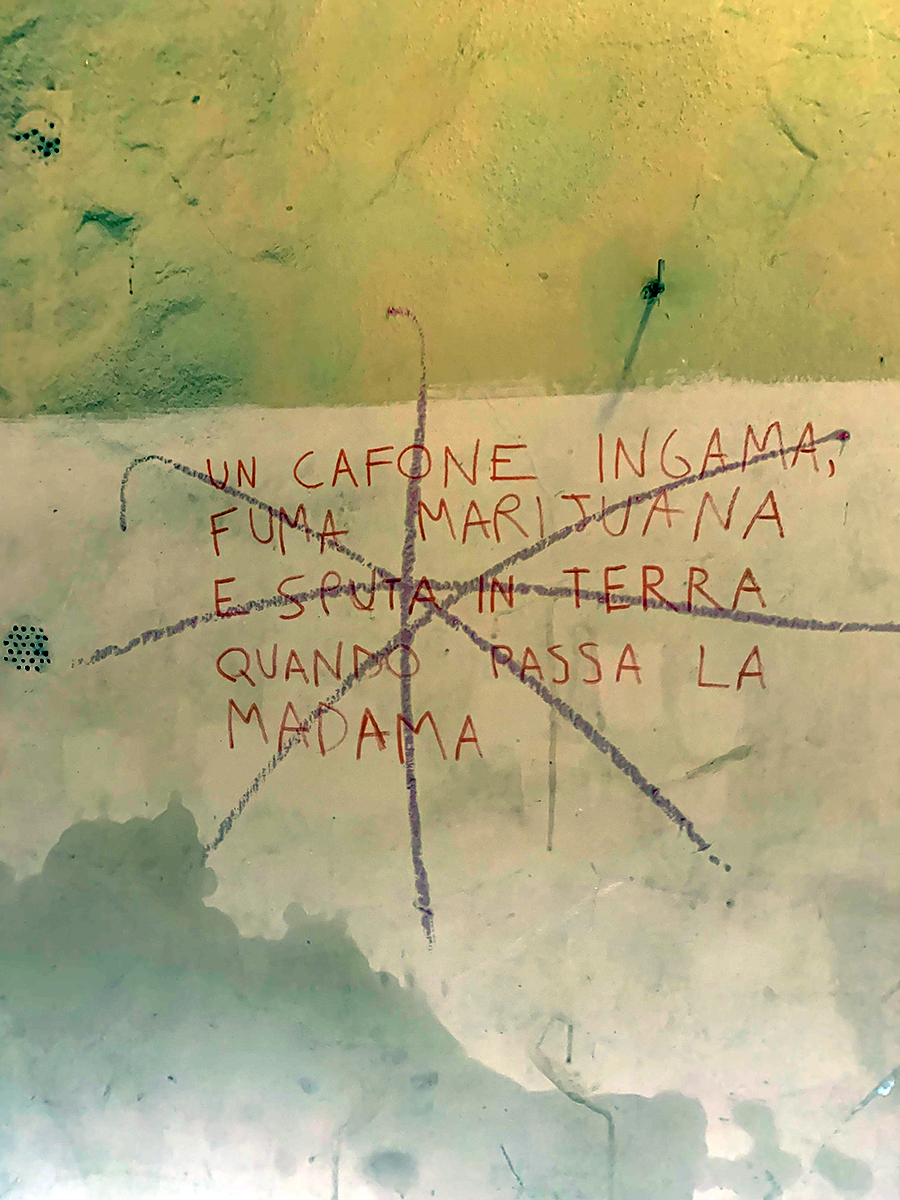 UN CAFONE INGAMA,
FUMA MARIJUANA
E SPUTA IN TERRA
QUANDO PASSA LA
MADAMA